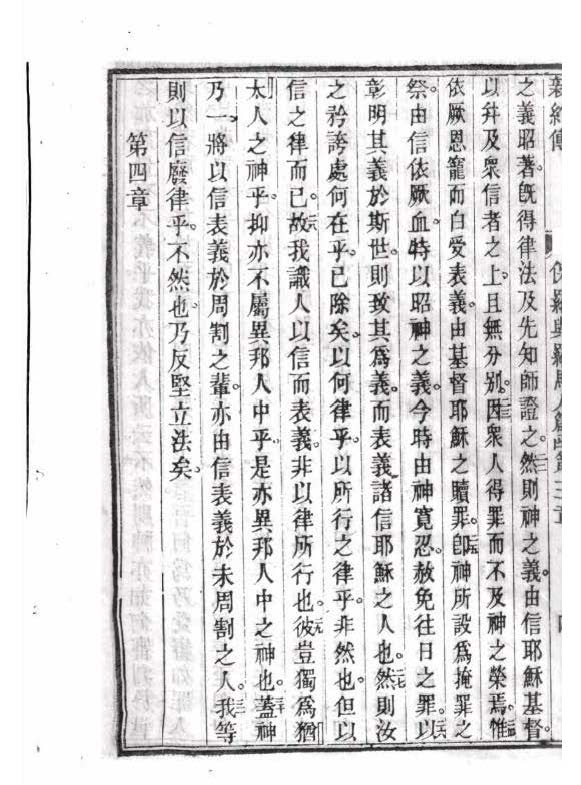 之義昭著旣得律法及先知師證之。二二然則神之義。由信耶穌基督。
以幷及衆信者之上。且無分別。二三因衆人得罪而不及神之榮焉。二四惟
依厥恩寵而白受表義。由基督耶穌之贖罪。二五卽神所設爲掩罪之
祭。由信依厥血。特以昭神之義。今時由神寬忍。赦免往日之罪。二六以
彰明其義於斯世。則致其爲義。而表義諸信耶穌之人也。二七然則汝
之矜誇處何在乎。已除矣。以何律乎。以所行之律乎。非然也。但以
信之律而已。二八故我識人以信而表義。非以律所行也。二九彼豈獨爲猶
太人之神乎。抑亦不屬異邦人中乎。是亦異邦人中之神也。三十蓋神
乃一。將以信表義於周割之輩。亦由信表義於未周割之人。三一我等
則以信廢律乎。不然也。乃反堅立法矣。
第四章